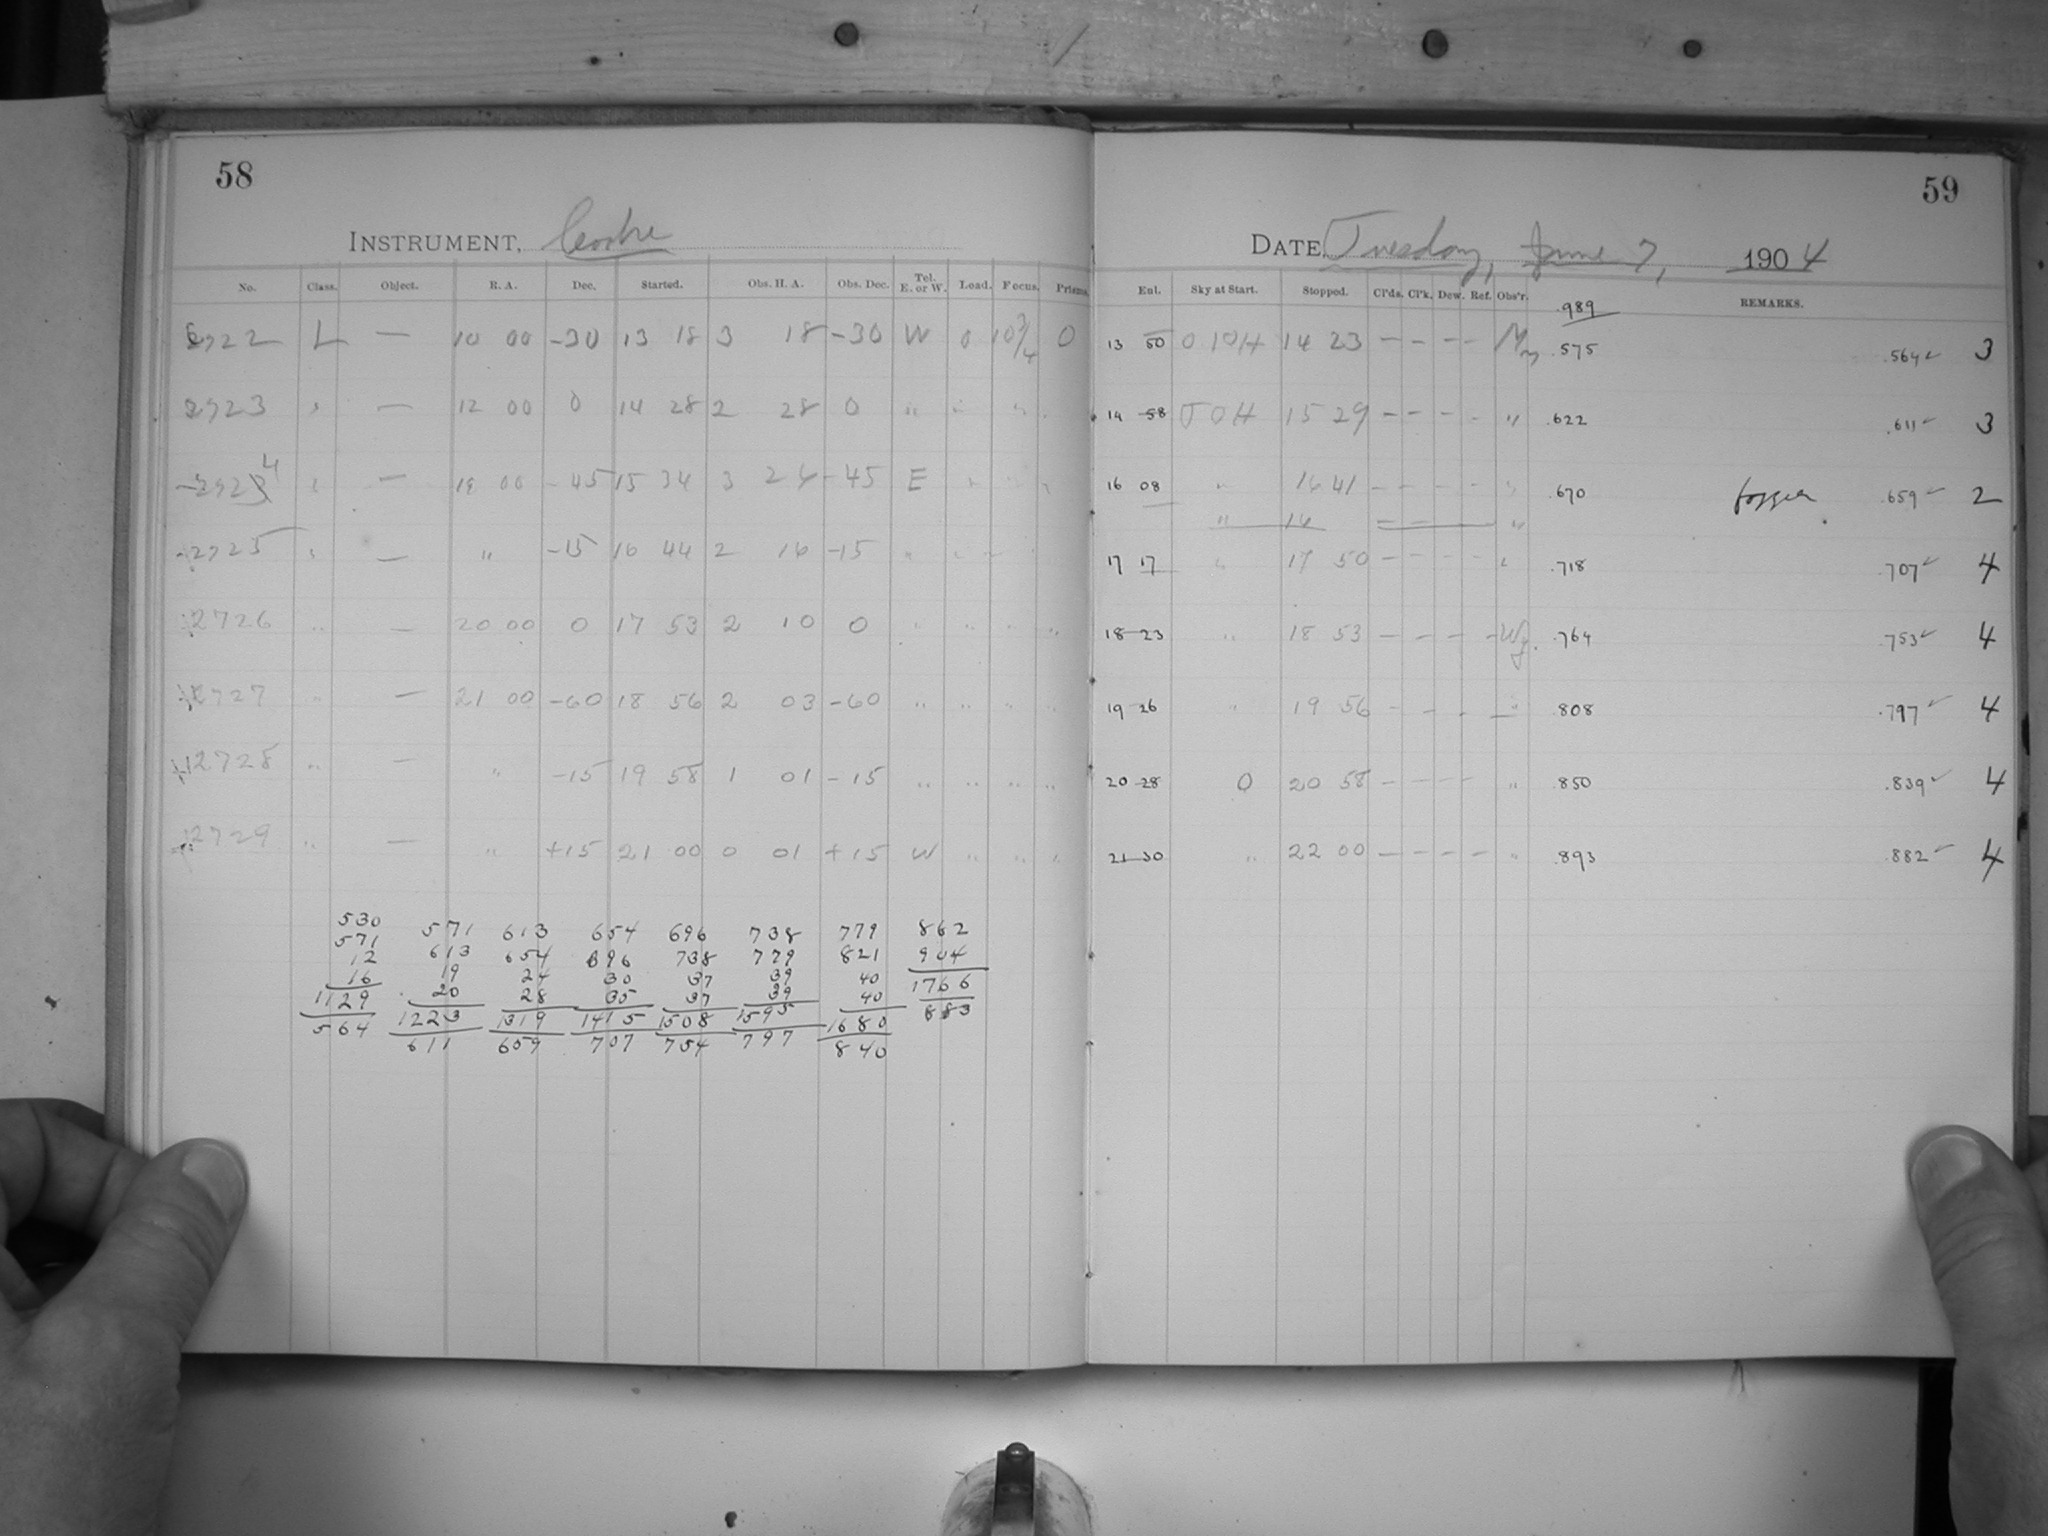 58
INSTRUMENT, Cooke
No. Class. Object. R. A. Dec. Started. Obs. H. A. Obs. Dec. Tel. E. or W. Load. Focus. Prisms
2722 L — 10 00 -30 13 18 3 18 -30 W 0 10 3/4 0
2723 " — 12 00 0 14 28 2 28 0 " " "
27234 " — 19 00 -45 15 34 3 26 -45 E " " "
2725 " — " -15 16 44 2 16 -15 " " "
2726 " — 20 00 0 17 53 2 10 0 " " " "
2727 " — 21 00 -60 18 56 2 03 -60 " " " "
2728 " — " -15 19 58 1 01 -15 " " " "
2729 " — " +15 21 00 0 01 +15 W " " "
530 571 613 654 696 738 779 862
571 613 654 696 738 779 821 904
12 19 24 30 37 39 40 1766
16 20 28 35 37 39 40 883
1129 1223 1319 1415 1508 1595 1680
564 611 659 707 754 797 840
59
DATE, Tuesday, June 7, 1904
End. Sky at Start. Stopped. Cl'ds. Cl'k. Dew. Ref. Obs'r. .989 REMARKS.
13 50 0 10H 14 23 — — — — .575 .564 ✓ 3
14 58 50H 15 29 — — — — " .622 .611 ✓ 3
16 08 " 16 41 — — — — " .670 fogged .659 ✓ 2
" 16 — — — — "
17 17 " 17 50 — — — — " .718 .707 ✓ 4
18 23 " 18 53 — — — — .764 .753 ✓ 4
19 26 " 19 56 — — — — " .808 .797 ✓ 4
20 28 0 20 58 — — — — " .850 .839 ✓ 4
21 30 " 22 00 — — — — " .893 .882 ✓ 4